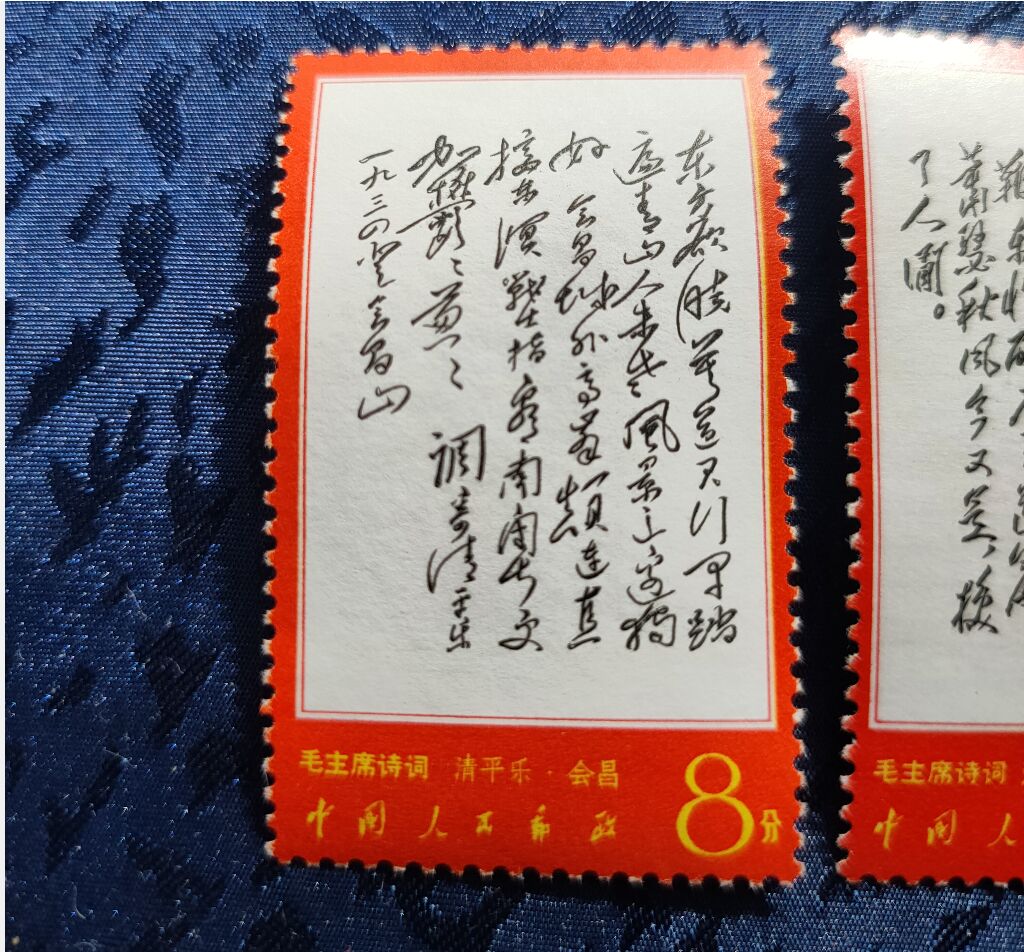 东方欲晓莫道君行早踏
遍青山人未老風景这边獨
好 会昌城外高峯颠连直
接东溟戰士指看南粤更
加鬱々葱々 调寄清平乐
一九三四登会昌山
毛主席诗词 清平乐·会昌
中国人民邮政 8分
萧瑟秋风今又是,换
了人间。
毛主席诗词
中国人